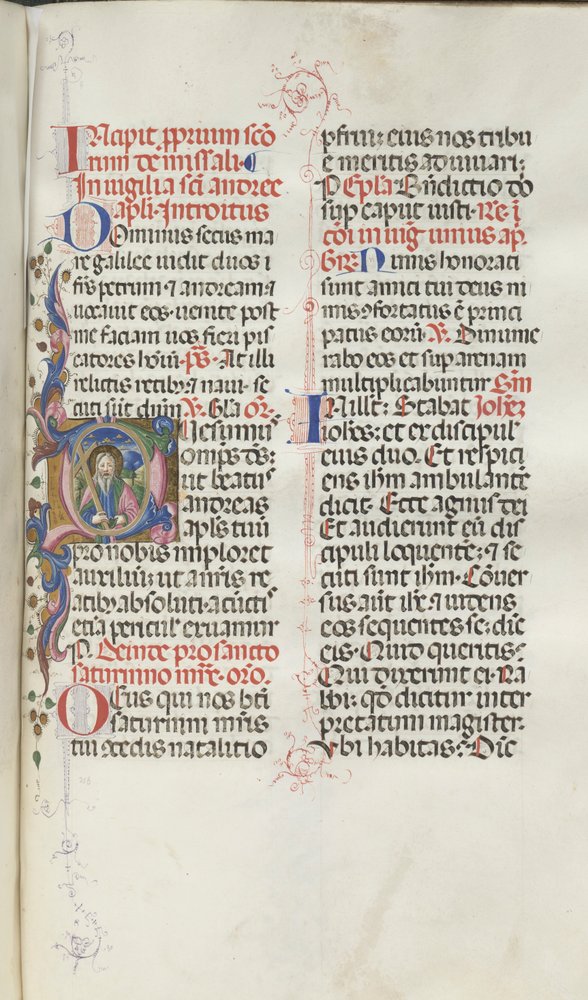 Incipit ꝓprium scō
rum de missali.
In uigilia scī andree
apli. Introitus
Dominus secus ma
re galilee uidit duos
frs petrum ⁊ andream ⁊
uocauit eos. uenite post
me faciam uos fieri pis
catores hoīm. ps. At illi
relictis retibꝫ ⁊ naui. se
cuti sūt dnm. V. Gla or.
Quesumus
omps ds:
ut beatus
andreas
apls tuus
pro nobis imploret
auxilium: ut a nris re
atibꝫ absoluti. a cunctis
etiā pericul' eruamur
P. Deinde pro sancto
saturnino mre. oro.
Deus qui nos bti
saturnini mris
tui ↄcedis natalitio
pfrui: eius nos tribu
e meritis adiuuari:
P. Epla Bndictio dō
sup caput iusti.
cōi in uig. unius ap.
Gr. Nimis honorati
sunt amici tui deus ni
mis ↄfortatus ē princi
patus eorū. V. Dinume
rabo eos et sup arenam
multiplicabuntur
In illt: Stabat Johes
iohes: et ex discipul'
eius duo. Et respici
ens ihm ambulantē
dicit. Ecce agnus dei
Et audierunt eū dis
cipuli loquentē: ⁊ se
cuti sunt ihm. Cōuer
sus aūt ihc. ⁊ uidens
eos sequentes se: dic
eis. Quid queritis?
Qui dixerunt ei. Ra
bbi. qd dicitur inter
pretatum magister.
Vbi habitas? Dic